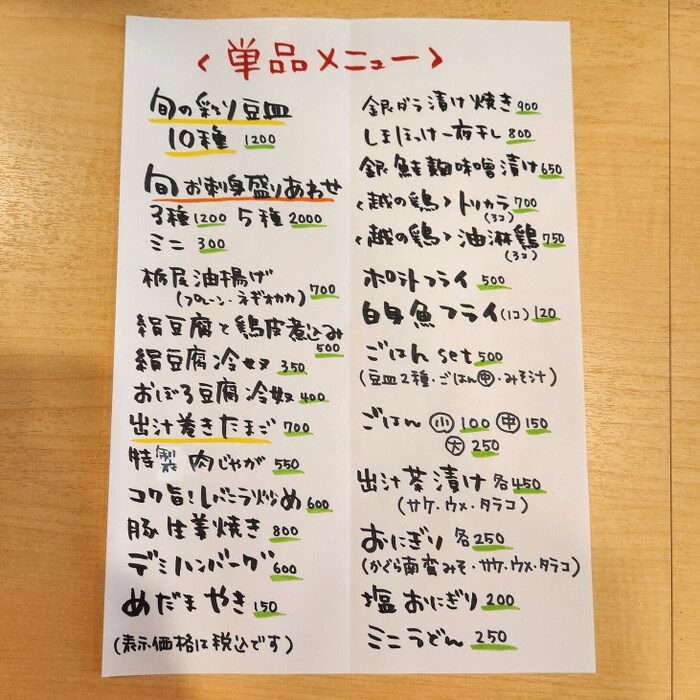 〈単品メニュー〉
旬の彩り豆皿
10種 1200
旬お刺身盛りあわせ
3種1200 5種2000
ミニ 300
栃尾油揚げ
(プレーン・ネギオカカ) 700
絹豆腐と鶏皮煮込み
500
絹豆腐冷奴 350
おぼろ豆腐冷奴 400
出汁巻きたまご 700
特製 肉じゃが 550
コク旨!レバニラ炒め 600
豚生姜焼き 800
デミハンバーグ 600
めだまやき 150
(表示価格は税込です)
銀ダラ漬け焼き 900
しまほっけ一夜干し 800
銀鮭麹味噌漬け 650
〈越の鶏〉トリカラ 700
(3コ)
〈越の鶏〉油淋鶏 750
(3コ)
ポテトフライ 500
白身魚フライ(1コ) 120
ごはんset 500
(豆皿2種・ごはん㊥・みそ汁)
ごはん ㊤小 100 ㊥ 150
大 250
出汁茶漬け 各450
(サケ・ウメ・タラコ)
おにぎり 各250
(かぐら南蛮みそ・サケ・ウメ・タラコ)
塩おにぎり 200
ミニうどん 250